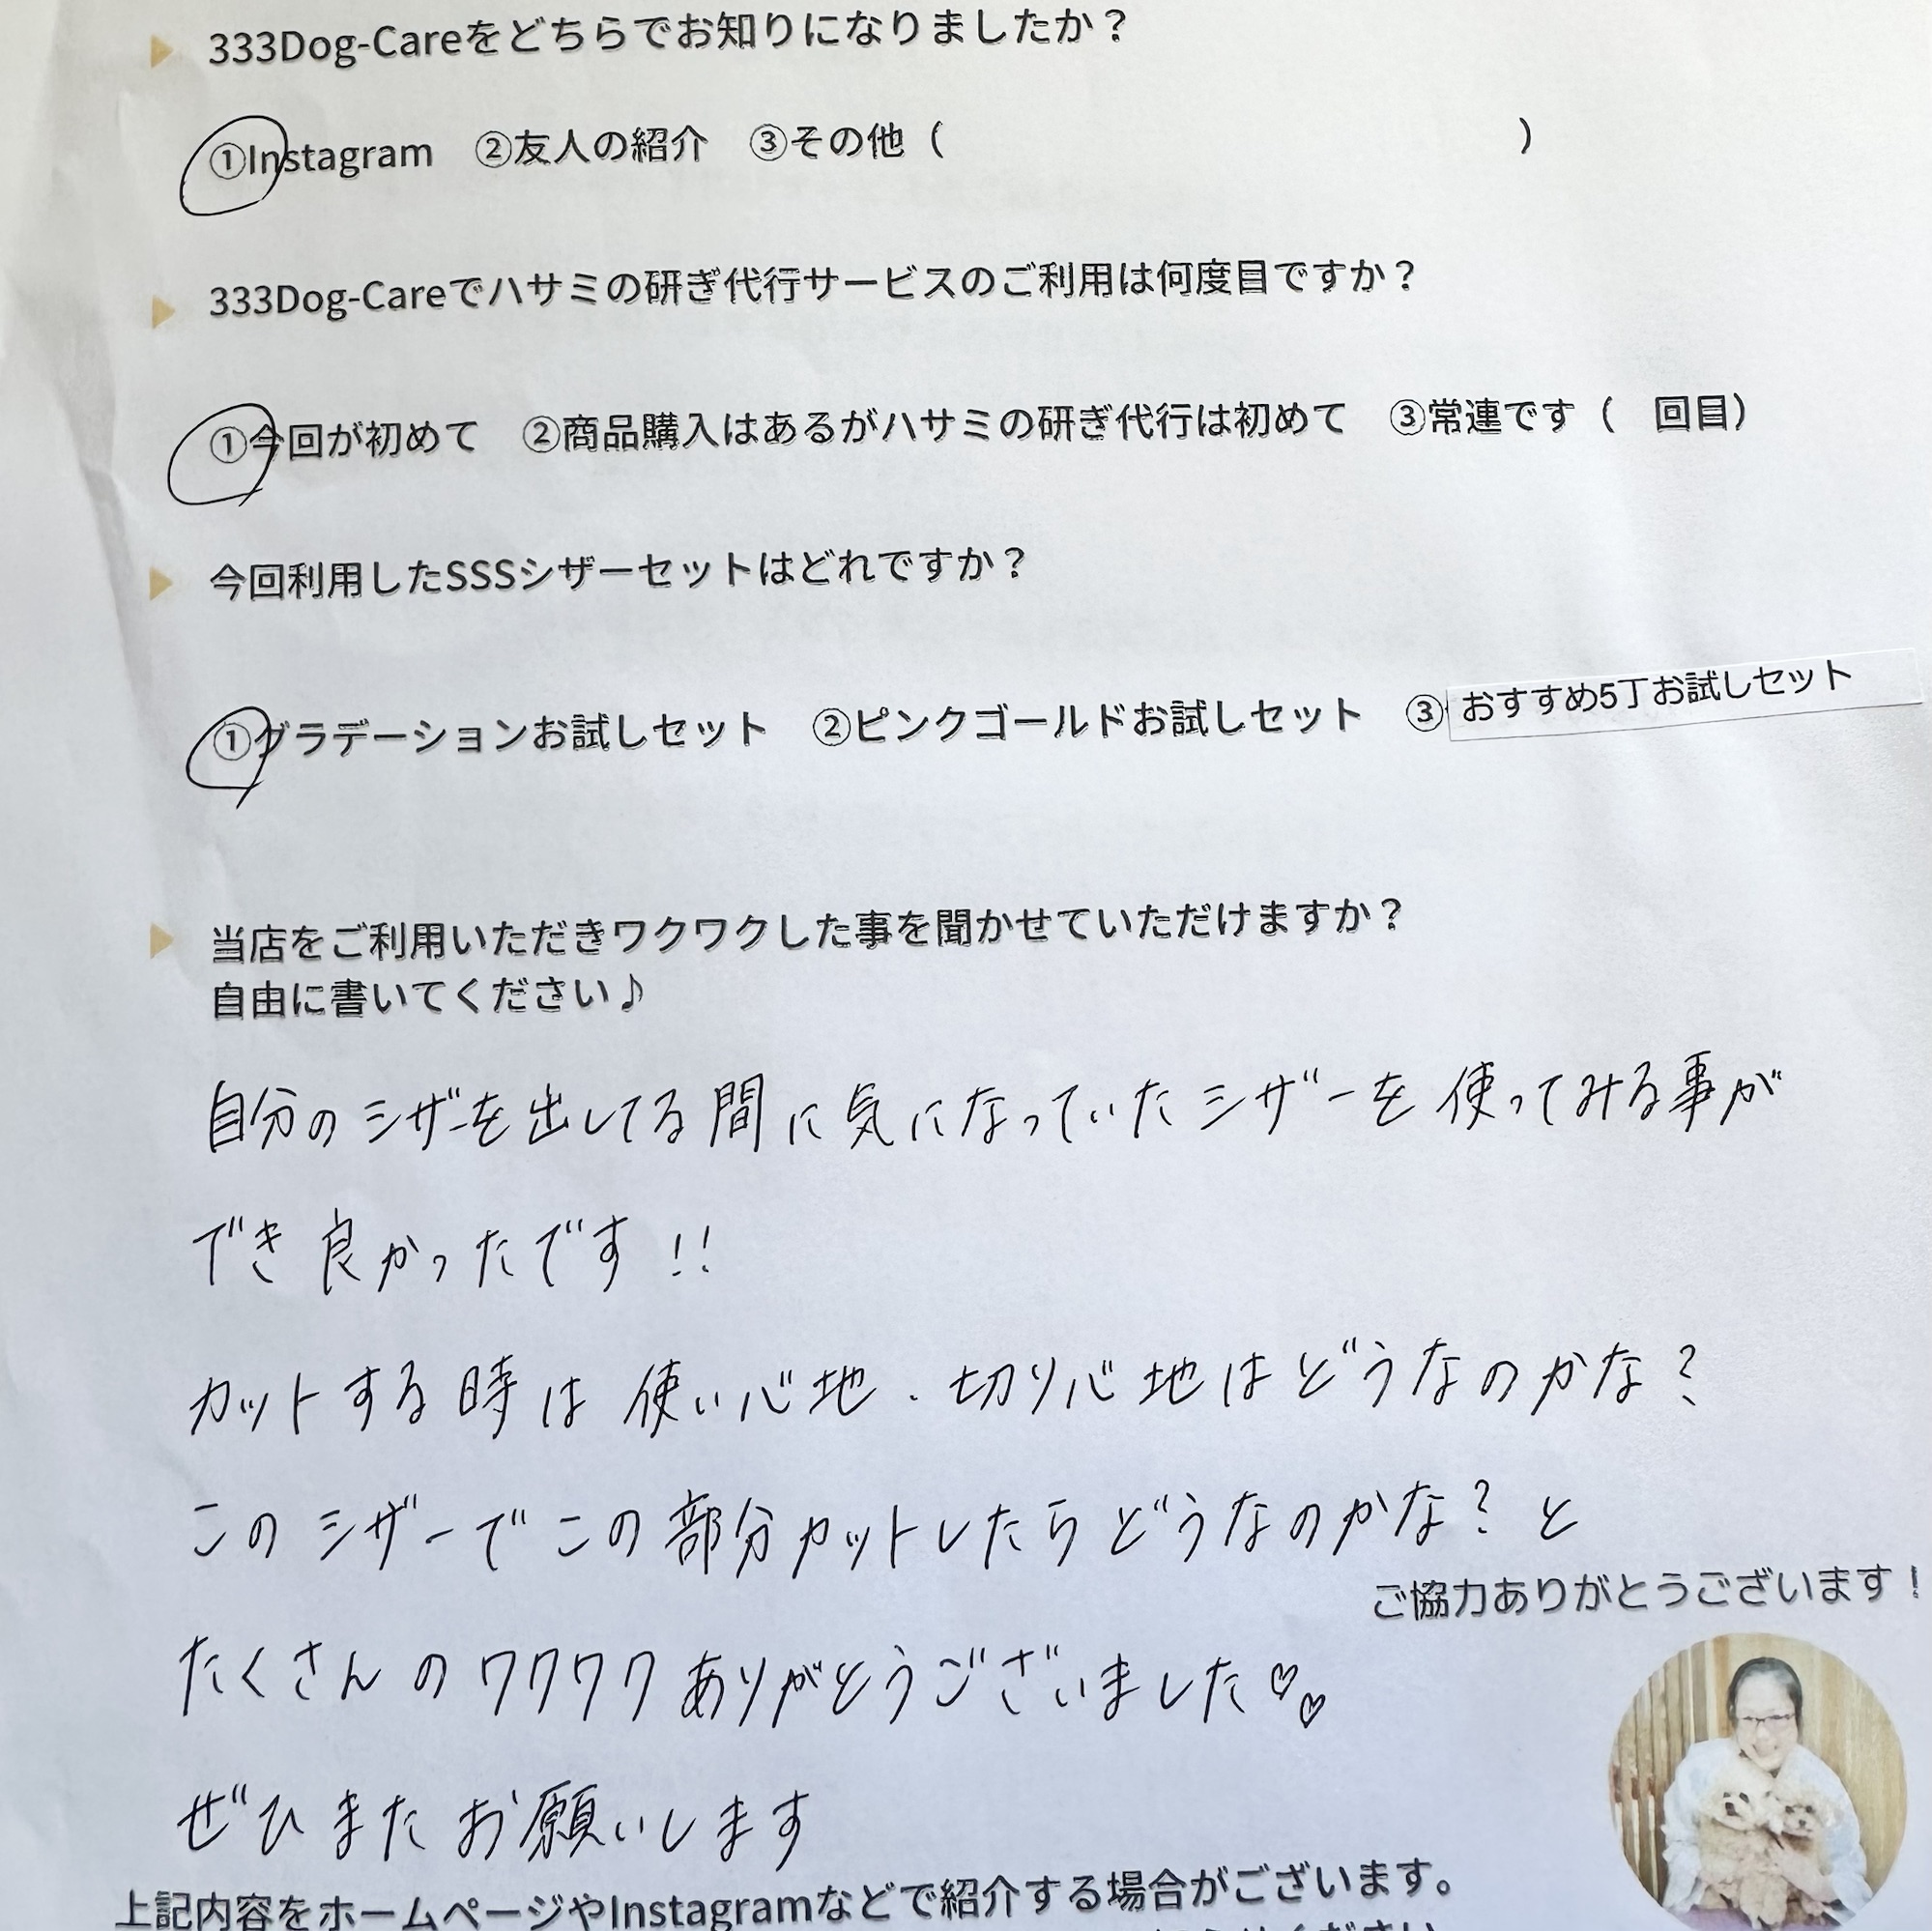 333Dog-Careをどちらでお知りになりましたか？
①Instagram ②友人の紹介 ③その他（ ）
333Dog-Careでハサミの研ぎ代行サービスのご利用は何度目ですか？
①今回が初めて ②商品購入はあるがハサミの研ぎ代行は初めて ③常連です（ 回目）
今回利用したSSSシザーセットはどれですか？
①グラデーションお試しセット ②ピンクゴールドお試しセット ③おすすめ5丁お試しセット
当店をご利用いただきワクワクした事を聞かせていただけますか？
自由に書いてください♪
自分のシザーを出してる間に気になっていたシザーを使ってみる事が
でき良かったです!!
カットする時は使い心地・切り心地はどうなのかな？
このシザーでこの部分カットしたらどうなのかな？と
ご協力ありがとうございます！
たくさんのワクワクありがとうございました♡♡
ぜひまたお願いします
上記内容をホームページやInstagramなどで紹介する場合がございます。